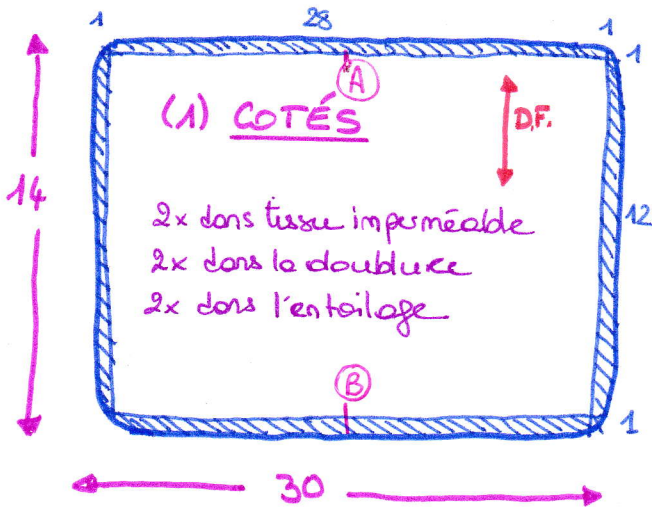 1 28 1
1
A
(1) COTÉS
D.F.
14
12
2x dans tissu imperméable
2x dans la doublure
2x dans l'entoilage
B
1
30